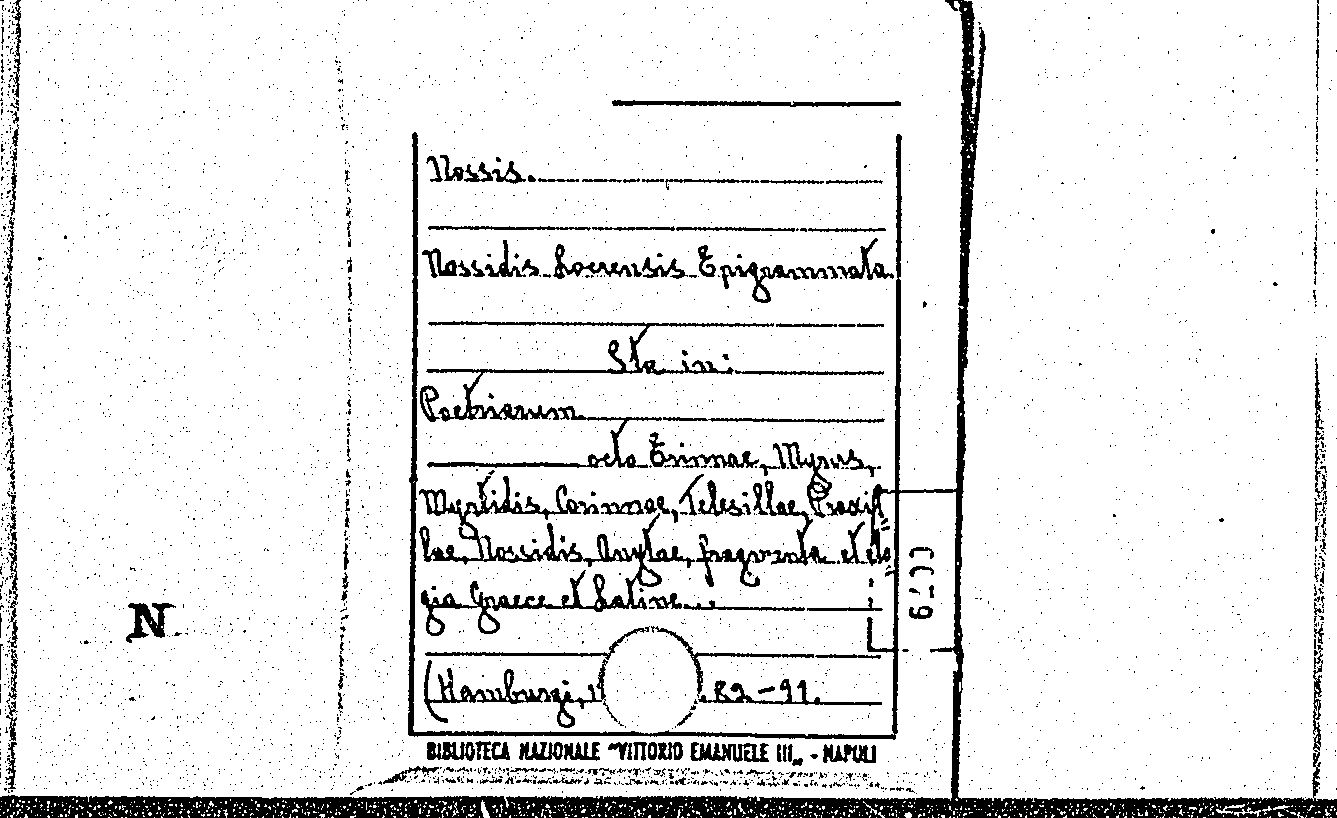 Nossis.
Nossidis Locrensis Epigrammata.
Sta in:
Poetriarum
octo Erinnae, Myrus,
Myrtidis, Corinnae, Telesillae, Praxil
lae, Nossidis, Anytae, fragmenta et ele
gia Graece et Latine...
(Hamburgi, 1 . 82-91.
BIBLIOTECA NAZIONALE "VITTORIO EMANUELE III„ - NAPOLI
N